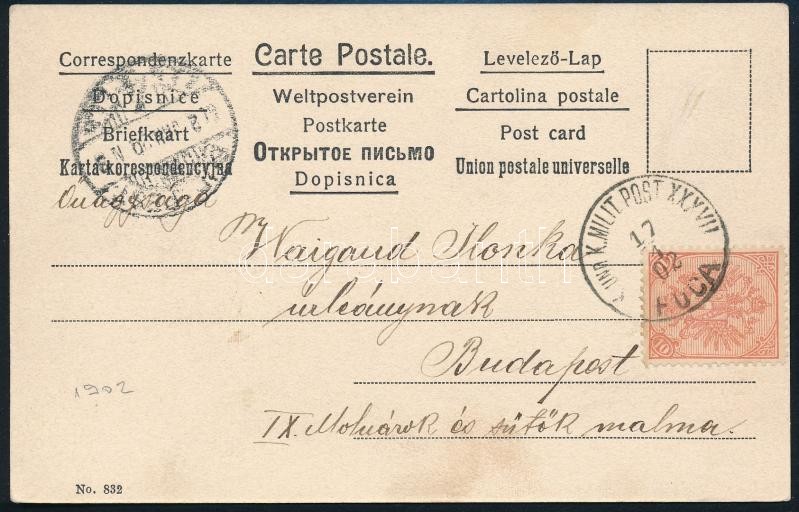 Correspondenzkarte
Carte Postale.
Levelező-Lap
Dopisnice
Weltpostverein
Cartolina postale
Briefkaart
Postkarte
Post card
Karta korespondencyjna
Открытое письмо
Union postale universelle
Dopisnica
K. UND K. MILIT. POST XXXVII
17
02
FOČA
10
Waigand Ilonka
úrleánynak
Budapest
IX. Molnárok és sütők malma.
1902
No. 832
darabanth